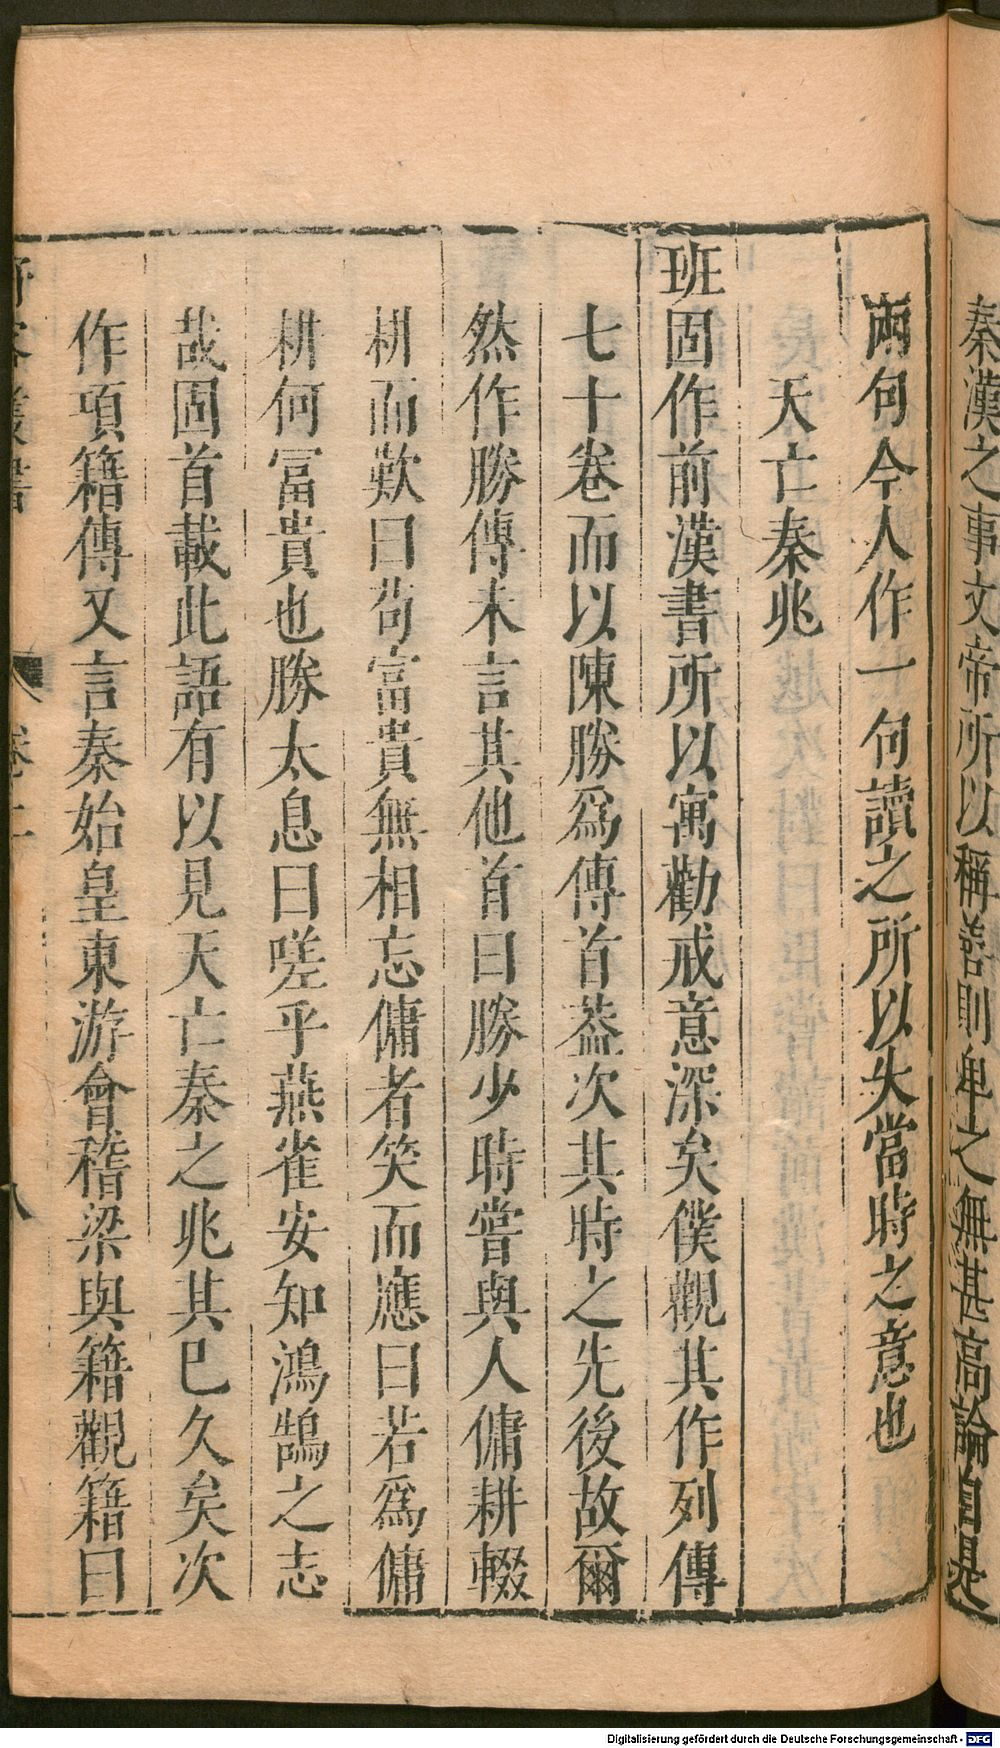 秦漢之事文帝所以稱善則卑之無甚高論自是
兩句今人作一句讀之所以失當時之意也
天亡秦兆
班固作前漢書所以寓勸戒意深矣僕觀其作列傳
七十卷而以陳勝爲傳首葢次其時之先後故爾
然作勝傳未言其他首曰勝少時嘗與人傭耕輟
耕而歎曰茍富貴無相忘傭者笑而應曰若爲傭
耕何冨貴也勝太息曰嗟乎燕雀安知鴻鵠之志
哉固首載此語有以見天亡秦之兆其已久矣次
作項籍傳又言秦始皇東游會稽梁與籍觀籍曰
野客叢書
卷十
八
Digitalisierung gefördert durch die Deutsche Forschungsgemeinschaft - DFG